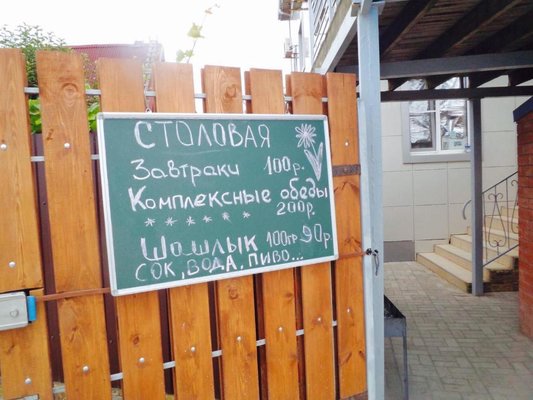 СТОЛОВАЯ
Завтраки 100р.
Комплексные обеды
200р.
Шашлык 100гр 90р
СОК, ВОДА, ПИВО...